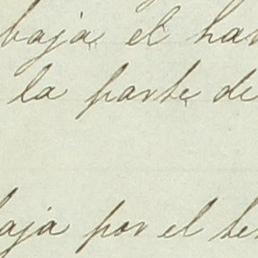 baja el han
la parte de
baja por el te